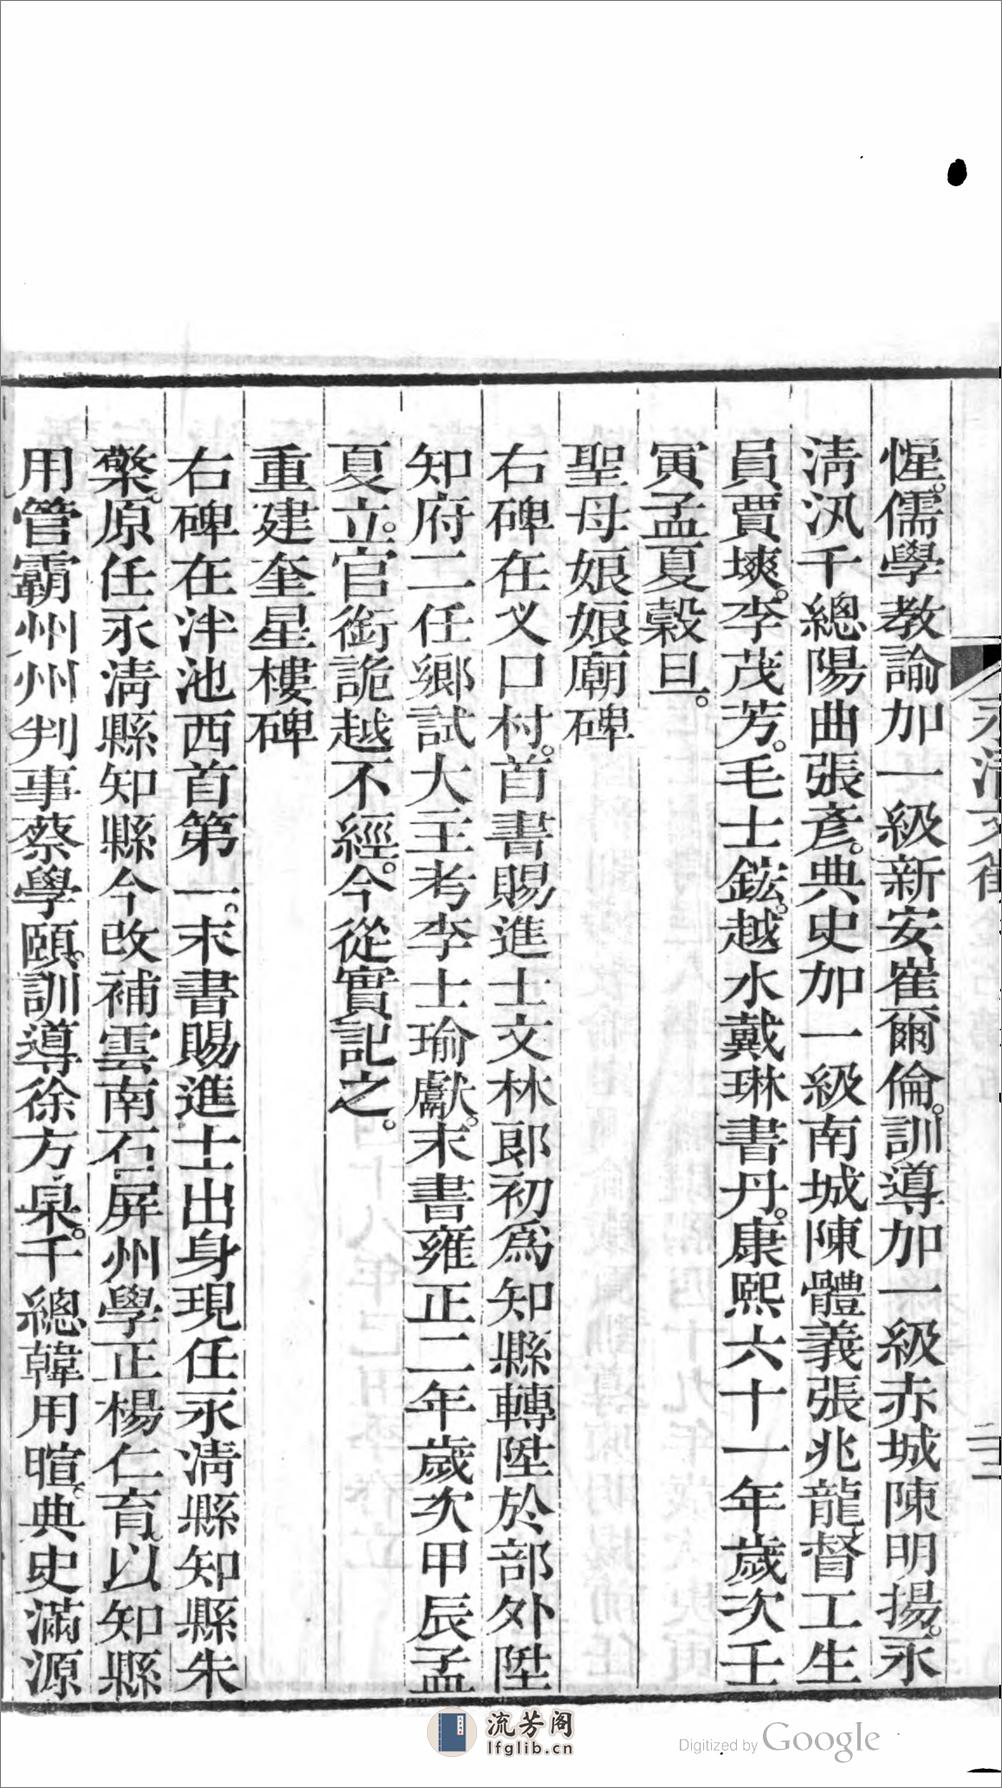 惺。儒學教諭加一級新安崔爾倫。訓導加一級赤城陳明揚。永
淸汛千總陽曲張彥。典史加一級南城陳體義張兆龍督工生
員賈塽。李茂芳。毛士鋐。越水戴琳書丹。康熙六十一年歲次壬
寅孟夏穀旦。
聖母娘娘廟碑
右碑在义口村。首書賜進士文林郎初爲知縣轉陞於部外陞
知府二任鄉試大主考李士瑜獻。末書雍正二年歲次甲辰孟
夏立。官銜詭越不經。今從實記之。
重建奎星樓碑
右碑在泮池西首第一。末書賜進士出身現任永淸縣知縣朱
檠。原任永淸縣知縣今改補雲南石屏州學正楊仁育。以知縣
用管霸州州判事蔡學頤。訓導徐方泉。千總韓用暄。典史滿源
流芳阁
lfglib.cn
Digitized by Google